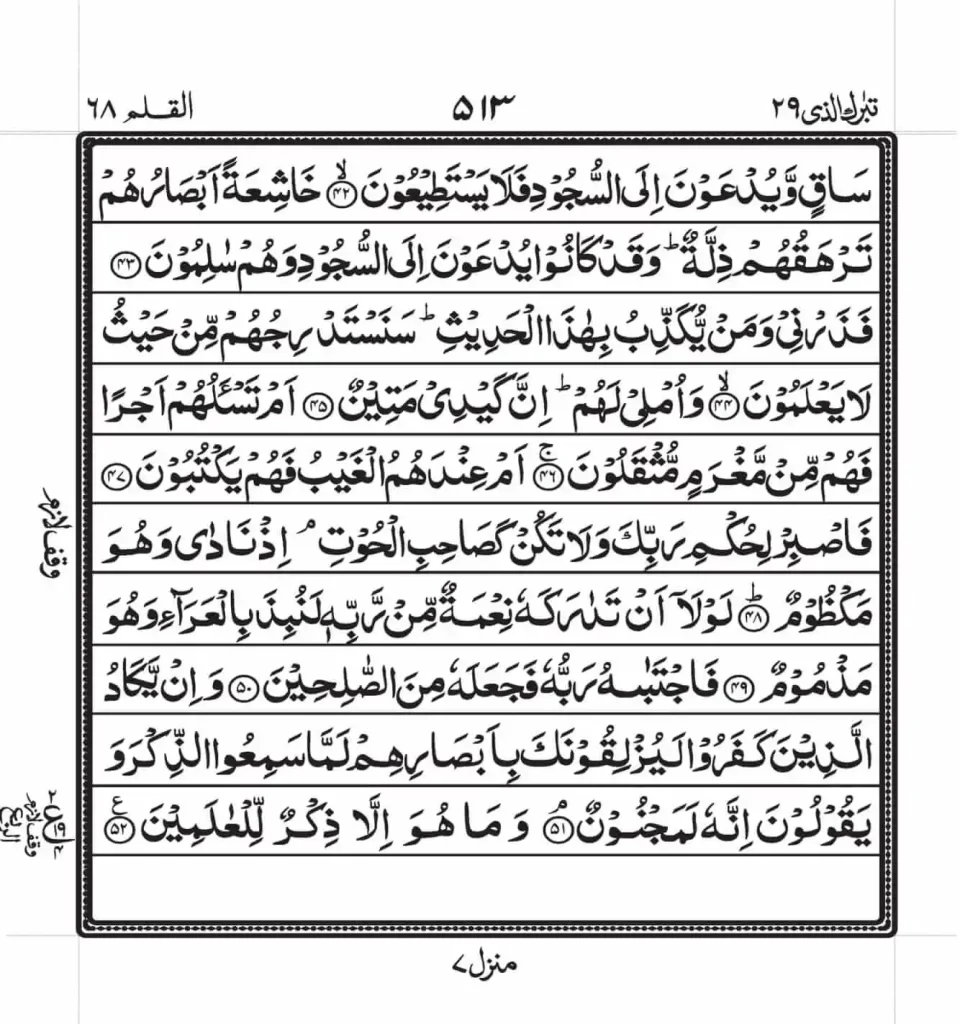 تبٰرك الذی ۲۹
۵۱۳
القلم ۶۸
سَاقٍ وَّيُدْعَوْنَ اِلَى السُّجُوْدِ فَلَا يَسْتَطِيْعُوْنَ ۙ‏﴿۴۲﴾ خَاشِعَةً اَبْصَارُهُمْ
تَرْهَقُهُمْ ذِلَّةٌ ؕ وَقَدْ كَانُوْا يُدْعَوْنَ اِلَى السُّجُوْدِ وَهُمْ سٰلِمُوْنَ ﴿۴۳﴾
فَذَرْنِیْ وَمَنْ يُّكَذِّبُ بِهٰذَا الْحَدِيْثِ ؕ سَنَسْتَدْرِجُهُمْ مِّنْ حَيْثُ
لَا يَعْلَمُوْنَ ۙ﴿۴۴﴾ وَاُمْلِیْ لَهُمْ ؕ اِنَّ كَيْدِیْ مَتِيْنٌ ﴿۴۵﴾ اَمْ تَسْـَٔلُهُمْ اَجْرًا
فَهُمْ مِّنْ مَّغْرَمٍ مُّثْقَلُوْنَ ۚ﴿۴۶﴾ اَمْ عِنْدَهُمُ الْغَيْبُ فَهُمْ يَكْتُبُوْنَ ﴿۴۷﴾
فَاصْبِرْ لِحُكْمِ رَبِّكَ وَلَا تَكُنْ كَصَاحِبِ الْحُوْتِ ۘ اِذْ نَادٰى وَهُوَ
مَكْظُوْمٌ ؕ﴿۴۸﴾ لَوْلَاۤ اَنْ تَدٰرَكَهٗ نِعْمَةٌ مِّنْ رَّبِّهٖ لَنُبِذَ بِالْعَرَآءِ وَهُوَ
مَذْمُوْمٌ ﴿۴۹﴾ فَاجْتَبٰىهُ رَبُّهٗ فَجَعَلَهٗ مِنَ الصّٰلِحِيْنَ ﴿۵۰﴾ وَاِنْ يَّكَادُ
الَّذِيْنَ كَفَرُوْا لَيُزْلِقُوْنَكَ بِاَبْصَارِهِمْ لَمَّا سَمِعُوا الذِّكْرَ وَ
يَقُوْلُوْنَ اِنَّهٗ لَمَجْنُوْنٌ ۘ﴿۵۱﴾ وَمَا هُوَ اِلَّا ذِكْرٌ لِّلْعٰلَمِيْنَ ﴿۵۲﴾ ع
وقف لازم
وقف لازم
الربع
منزل ۷